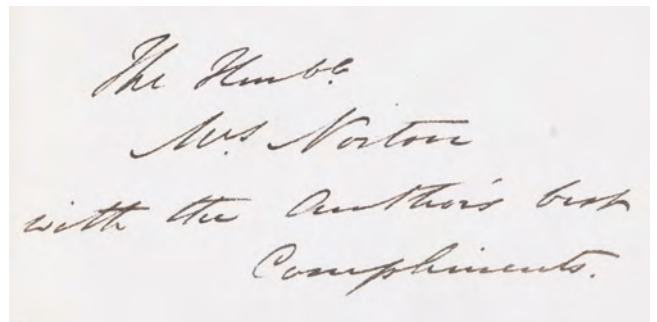 The Honble.
Mrs Norton
with the Author's best
Compliments.